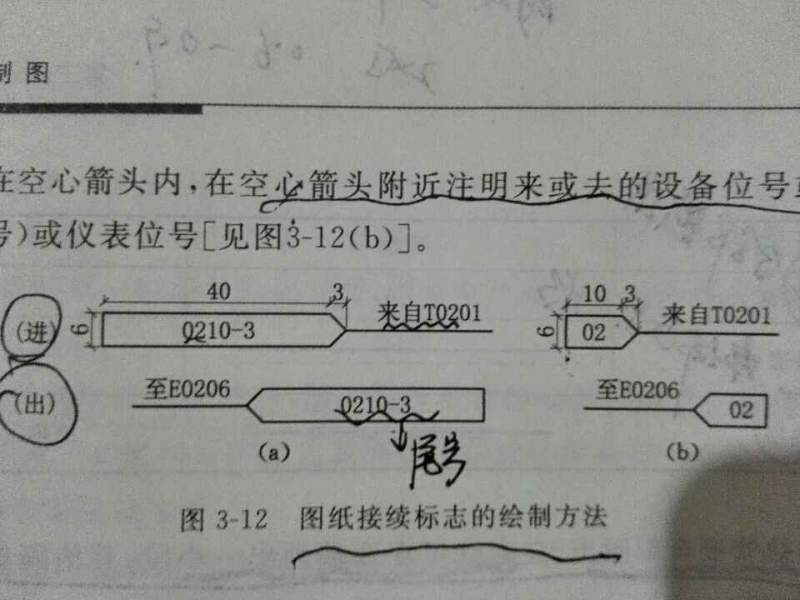 2人 0.6-0.9
制 图
在空心箭头内,在空心箭头附近注明来或去的设备位号或
号)或仪表位号[见图3-12(b)]。
40 3 10 3
(进) 6 0210-3 来自T0201 6 02 来自T0201
(出) 至E0206 0210-3 至E0206 02
(a) 尾号 (b)
图 3-12 图纸接续标志的绘制方法